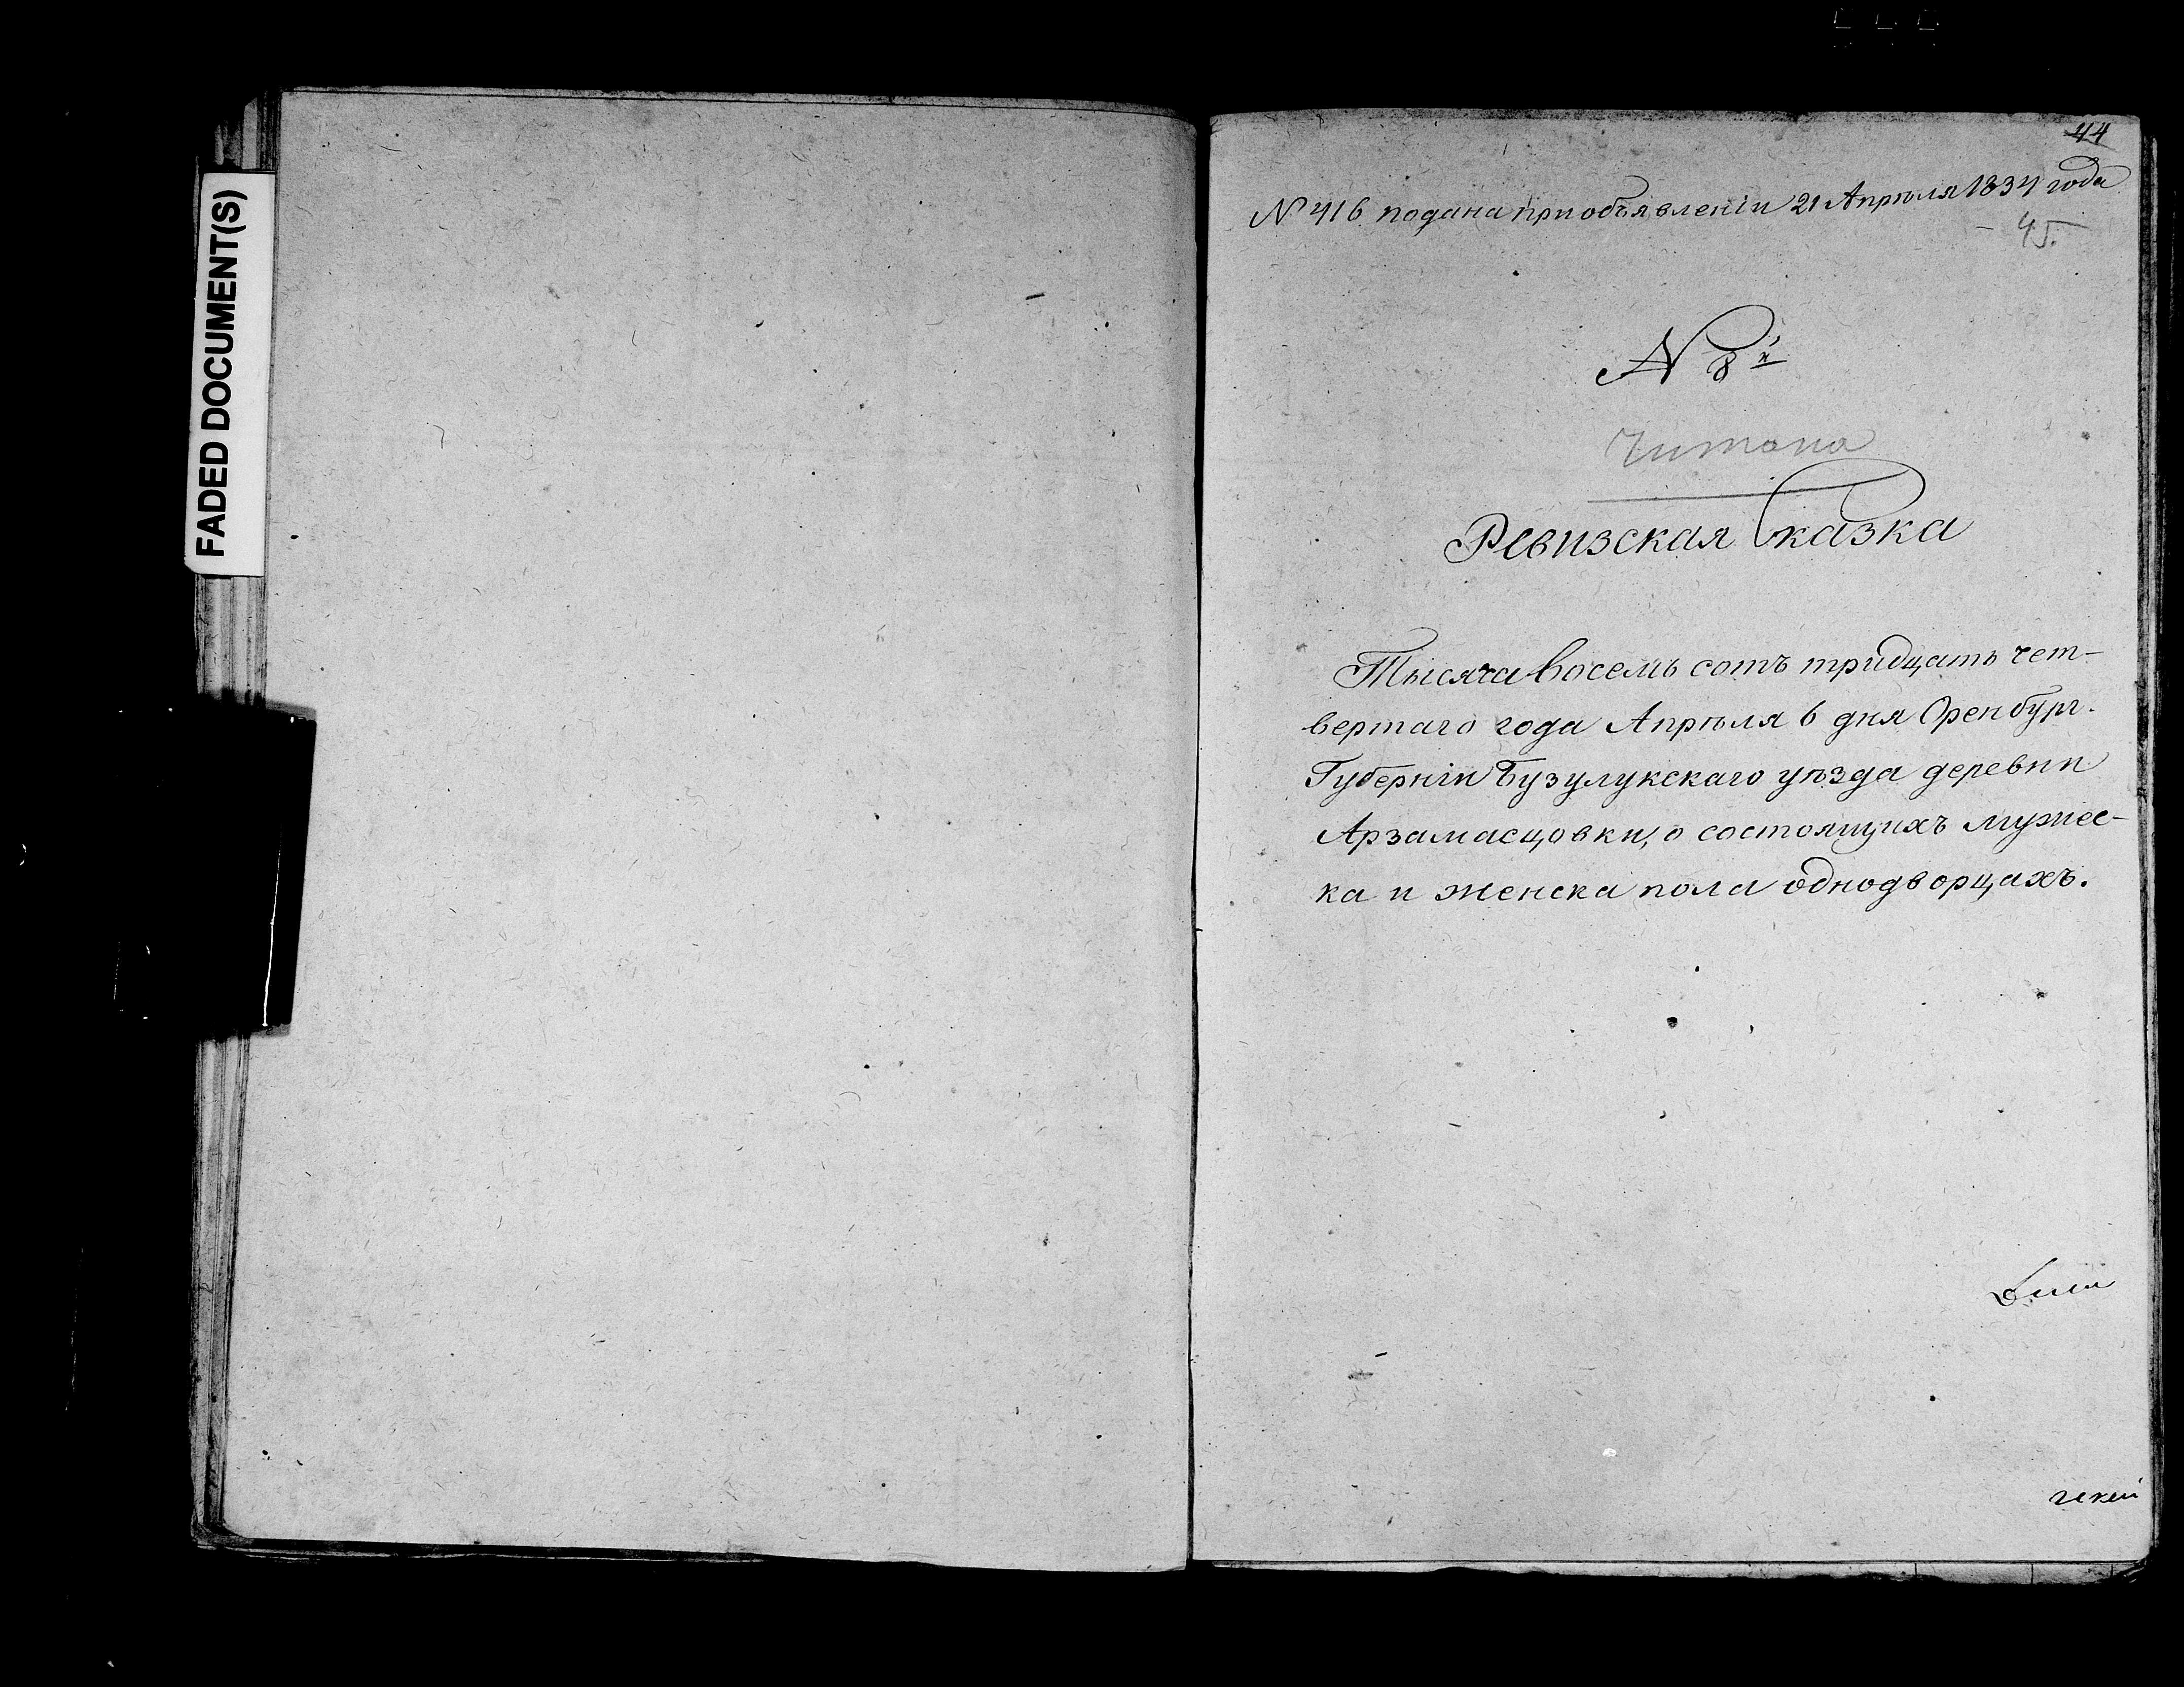 FADED DOCUMENT(S)
44
№ 416 подана при объявленіи 21 Апрѣля 1834 года
45.
№ 8й
Читана
Ревизская Сказка
Тысяча восемь сотъ тридцать чет-
вертаго года Апрѣля 6 дня Оренбург.
Губерніи Бузулукскаго уѣзда деревни
Арзамасцовки, о состоящихъ мужес-
ка и женска пола однодворцахъ.